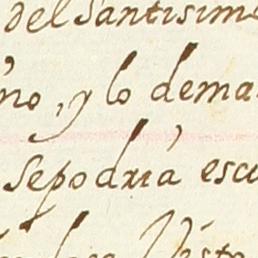 del Santisimo
no, y lo dema
Sepodria escu
Visto